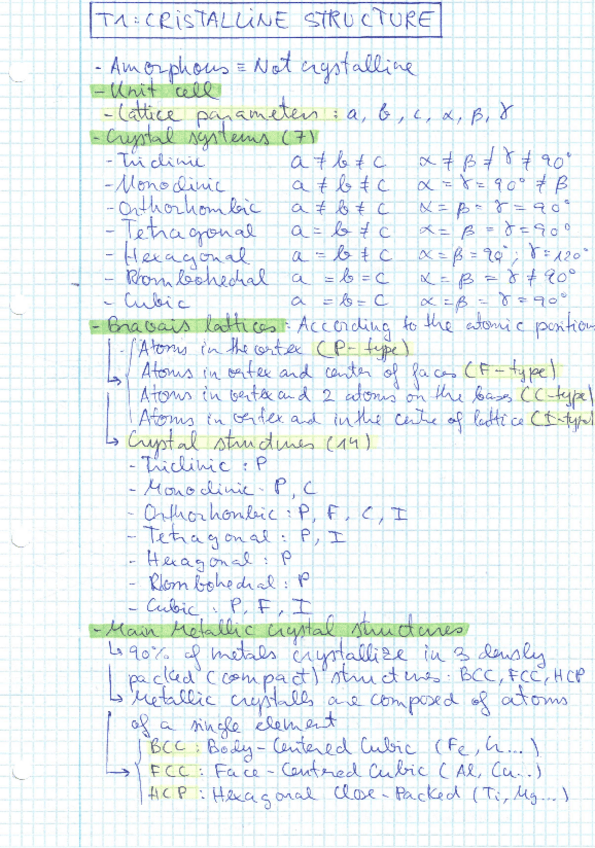 T1: CRISTALLINE STRUCTURE
- Amorphous ≡ Not crystalline
- Unit cell
- Lattice parameters : a, b, c, α, β, γ
- Crystal systems (7)
- Triclinic a ≠ b ≠ c α ≠ β ≠ γ ≠ 90°
- Monoclinic a ≠ b ≠ c α = γ = 90° ≠ β
- Orthorhombic a ≠ b ≠ c α = β = γ = 90°
- Tetragonal a = b ≠ c α = β = γ = 90°
- Hexagonal a = b ≠ c α = β = 90°; γ = 120°
- Rhombohedral a = b = c α = β = γ ≠ 90°
- Cubic a = b = c α = β = γ = 90°
- Bravais lattices : According to the atomic position
- Atoms in the vertex (P-type)
Atoms in vertex and center of faces (F-type)
Atoms in vertex and 2 atoms on the bases (C-type)
Atoms in vertex and in the centre of lattice (I-type)
↳ Crystal structures (14)
- Triclinic : P
- Monoclinic - P, C
- Orthorhombic : P, F, C, I
- Tetragonal : P, I
- Hexagonal : P
- Rhombohedral : P
- Cubic : P, F, I
- Main Metallic crystal structures
↳ 90% of metals crystallize in 3 densly
packed (compact) structures : BCC, FCC, HCP
↳ Metallic crystalls are composed of atoms
of a single element
BCC : Body-Centered Cubic (Fe, Cr...)
FCC : Face-Centred Cubic (Al, Cu..)
HCP : Hexagonal Close-Packed (Ti, Mg...)